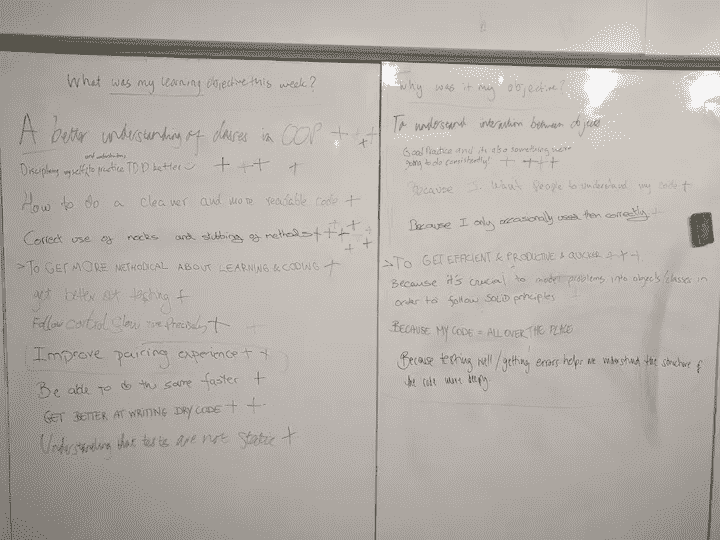 What was my learning objective this week?
A better understanding of classes in OOP + + + +
and understanding
Disciplining myself to practice TDD better + ++ +
How to do a cleaner and more readable code +
Correct use of mocks and stubbing of methods + + + + + + +
>TO GET MORE METHODICAL ABOUT LEARNING & CODING +
get better at testing +
Follow control flow more precisely +
Improve pairing experience + +
Be able to do the same faster +
GET BETTER AT WRITING DRY CODE + +
Understanding that tests are not static +
Why was it my objective?
To understand interaction between objects
Good Practice and its also something we're
going to do consistently! + + + +
Because I want people to understand my code +
Because I only occasionally used them correctly +
>TO GET EFFICIENT & PRODUCTIVE & QUICKER + + +
Because it's crucial to model problems into objects/classes in
order to follow SOLID principles +
BECAUSE MY CODE = ALL OVER THE PLACE
Because testing well / getting errors helps me understand the structure of
the code more deeply.